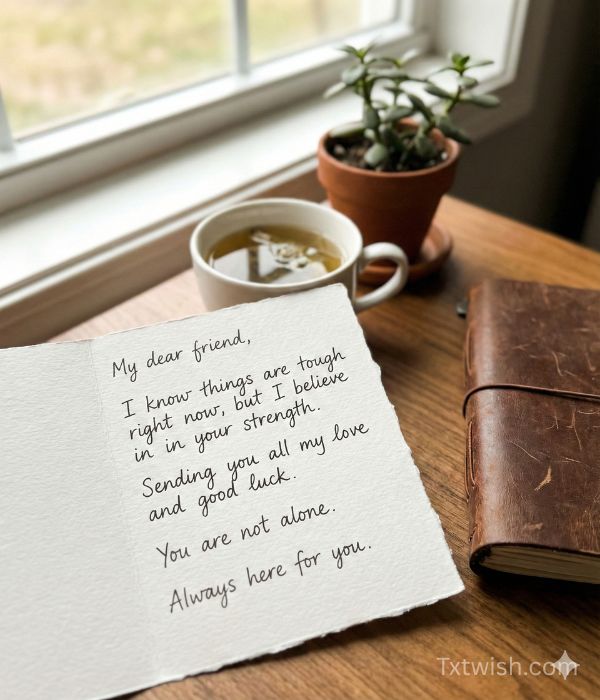 My dear friend,
I know things are tough
right now, but I believe
in in your strength.
Sending you all my love
and good luck.
You are not alone.
Always here for you.
Txtwish.com